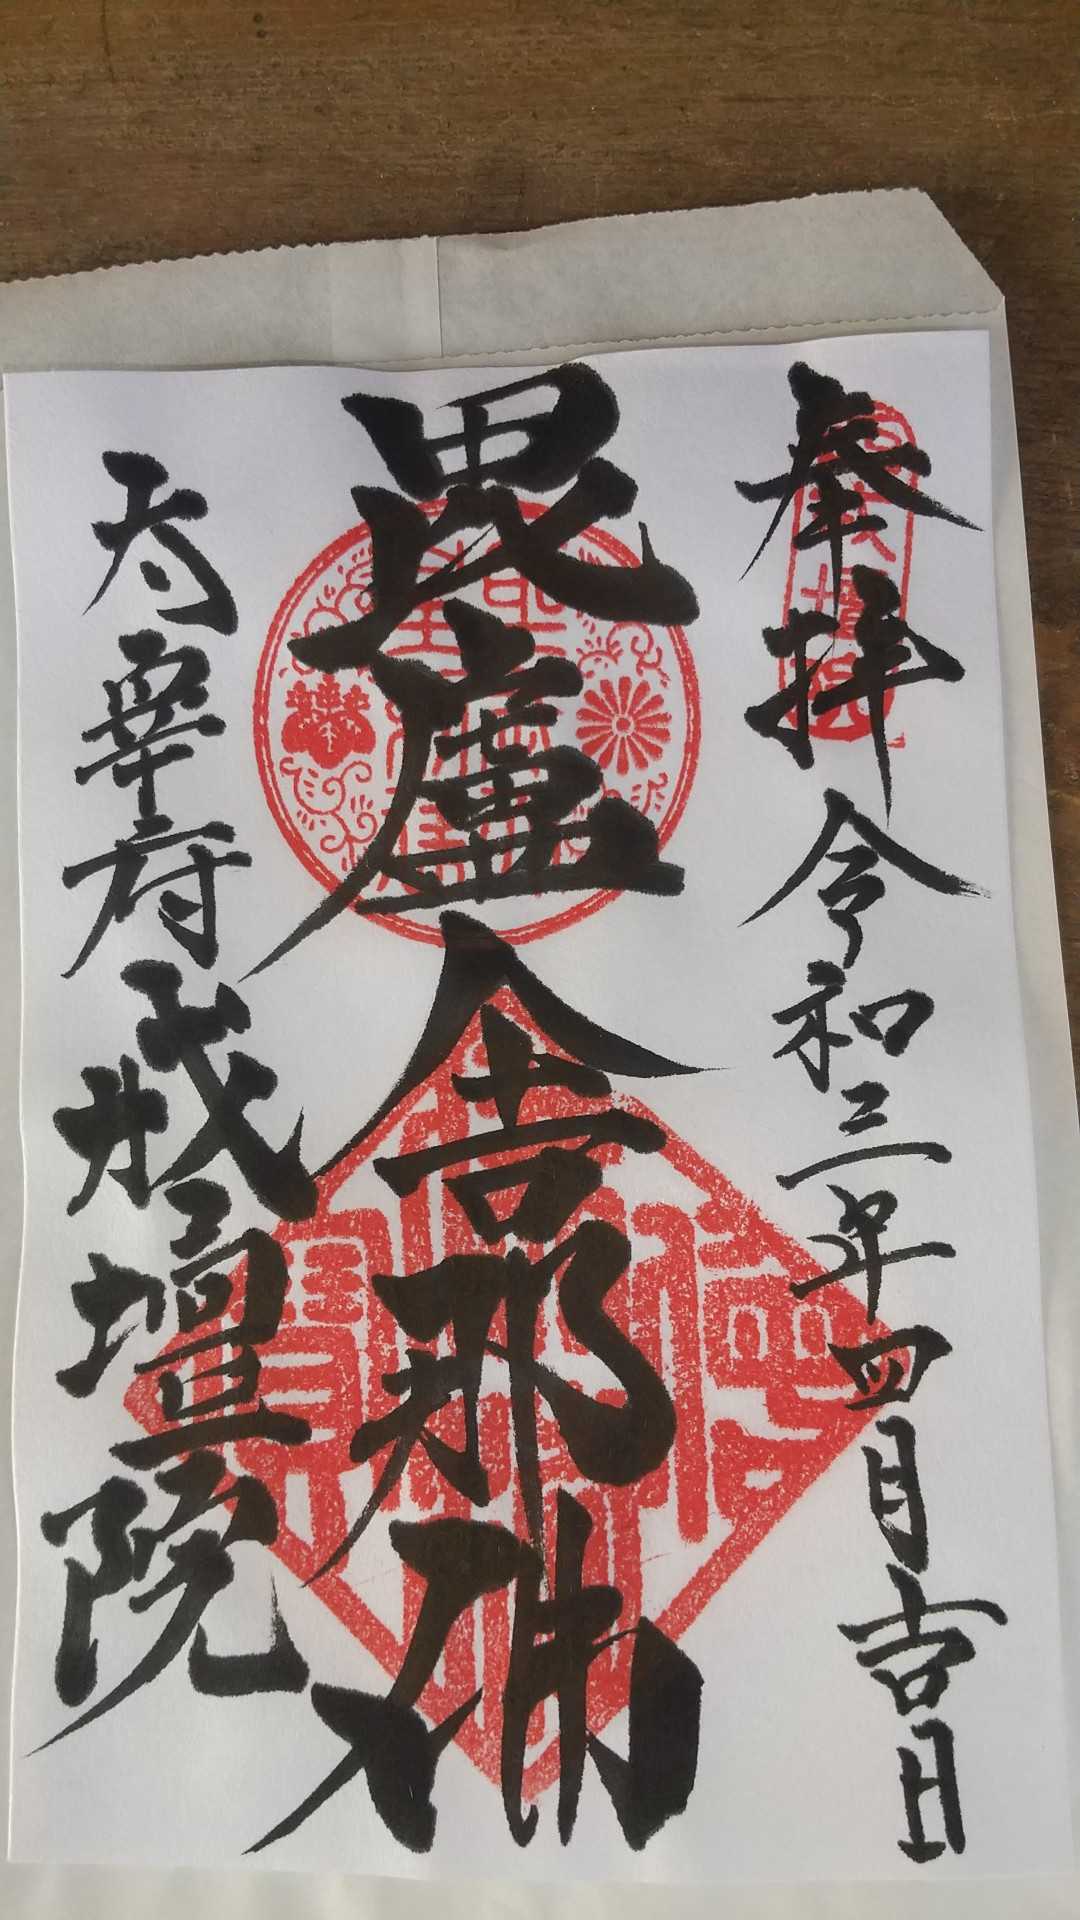 奉拝 令和三年四月吉日
毘盧舎那佛
太宰府 戒壇院